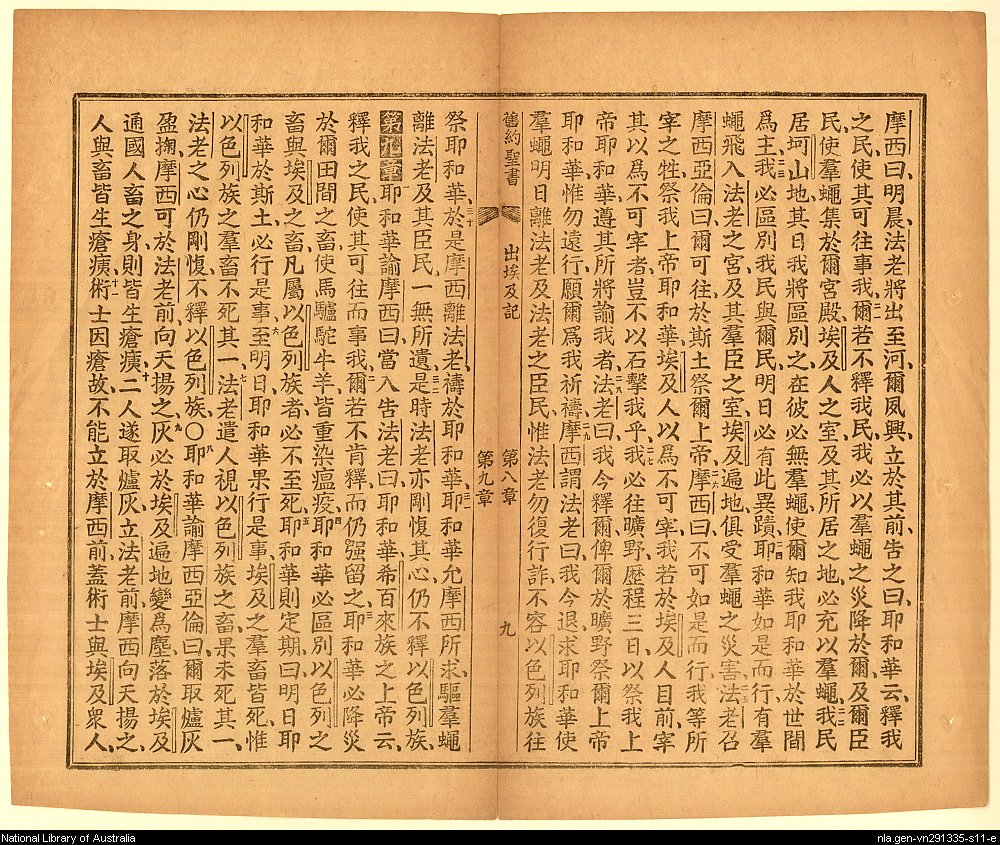 摩西曰、明晨、法老將出至河、爾夙興、立於其前、告之曰、耶和華云、釋我
之民、使其可往事我、二一爾若不釋我民、我必以羣蠅之災、降於爾、及爾臣
民、使羣蠅集於爾宮殿、埃及人之室、及其所居之地、必充以羣蠅、二二我民
居坷山地、其日我將區別之、在彼必無羣蠅、使爾知我耶和華於世間
爲主、二三我必區別我民與爾民、明日必有此異蹟、二四耶和華如是而行、有羣
蠅飛入法老之宮、及其羣臣之室、埃及遍地、俱受羣蠅之災害、二五法老召
摩西亞倫曰、爾可往於斯土祭爾上帝、二六摩西曰、不可如是而行、我等所
宰之牲、祭我上帝耶和華、埃及人以爲不可宰、我若於埃及人目前、宰
其以爲不可宰者、豈不以石擊我乎、二七我必往曠野、歷程三日、以祭我上
帝耶和華、遵其所將諭我者、二八法老曰、我今釋爾、俾爾於曠野祭爾上帝
耶和華、惟勿遠行、願爾爲我祈禱、二九摩西謂法老曰、我今退、求耶和華使
羣蠅明日離法老、及法老之臣民、惟法老勿復行詐、不容以色列族往
舊約聖書 出埃及記 第八章 第九章 九
祭耶和華、三十於是摩西離法老、禱於耶和華、三一耶和華允摩西所求、驅羣蠅
離法老及其臣民、一無所遺、三二是時法老亦剛愎其心、仍不釋以色列族、
第九章 耶和華諭摩西曰、當入告法老曰、耶和華希百來族之上帝云、
釋我之民、使其可往而事我、二爾若不肯釋、而仍強留之、三耶和華必降災
於爾田間之畜、使馬驢駝牛羊、皆重染瘟疫、四耶和華必區別以色列之
畜、與埃及之畜、凡屬以色列族者、必不至死、五耶和華則定期曰、明日耶
和華於斯土、必行是事、六至明日、耶和華果行是事、埃及之羣畜皆死、惟
以色列族之羣畜、不死其一、七法老遣人視以色列族之畜、果未死其一、
法老之心仍剛愎、不釋以色列族、〇八耶和華諭摩西亞倫曰、爾取爐灰
盈掬、摩西可於法老前、向天揚之、九灰必於埃及遍地變爲塵、落於埃及
通國人畜之身、則皆生瘡瘼、十二人遂取爐灰、立法老前、摩西向天揚之、
人與畜皆生瘡瘼、十一術士因瘡故、不能立於摩西前、蓋術士與埃及衆人、
National Library of Australia
nla.gen-vn291335-s11-e